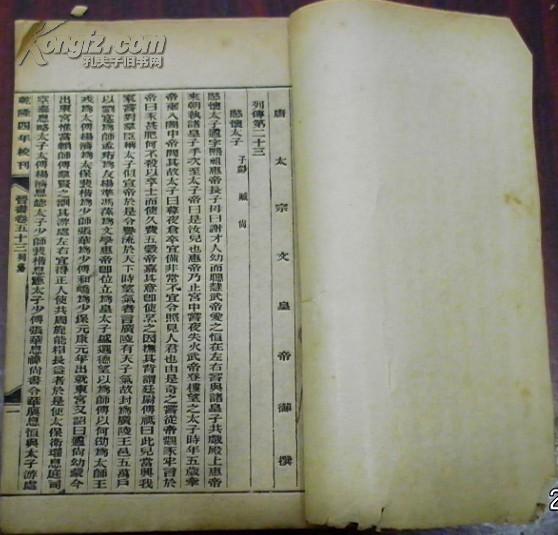 Kongfz.com
孔夫子旧书网
唐太宗文皇帝御撰
列傳第二十三
愍懷太子 子虨 臧 尚
愍懷太子遹字熙祖惠帝長子母曰謝才人幼而聰慧武帝愛之恒在左右嘗與諸皇子共戲殿上惠帝
來朝執諸皇子手次至太子帝曰是汝兒也惠帝乃止宮中嘗夜失火武帝登樓望之太子時年五歲牽
帝裾入闇中帝問其故太子曰暮夜倉卒宜備非常不宜令照見人君也由是奇之嘗從帝觀豕牢言於
帝曰豕甚肥何不殺以享士而使久費五穀帝嘉其意即使烹之因撫其背謂廷尉傅祗曰此兒當興我
家嘗對羣臣稱太子似宣帝於是令譽流於天下時望氣者言廣陵有天子氣故封爲廣陵王邑五萬戶
以劉寔爲師孟珩爲友楊準馮蓀爲文學惠帝即位立爲皇太子盛選德望以爲師傅以何劭爲太師王
戎爲太傅楊濟爲太保裴楷爲少師張華爲少傅和嶠爲少保元康元年出就東宮又詔曰遹尚幼蒙今
出東宮惟當賴師傅羣賢之訓其游處左右宜得正人使共周旋能相長益者於是使太保衛瓘息庭司
空泰息略太子太傅楊濟息毖太子少師裴楷息憲太子少傅張華息禕尚書令華廙息恒與太子游處
乾隆四年校刊
晉書卷五十三 列傳
一